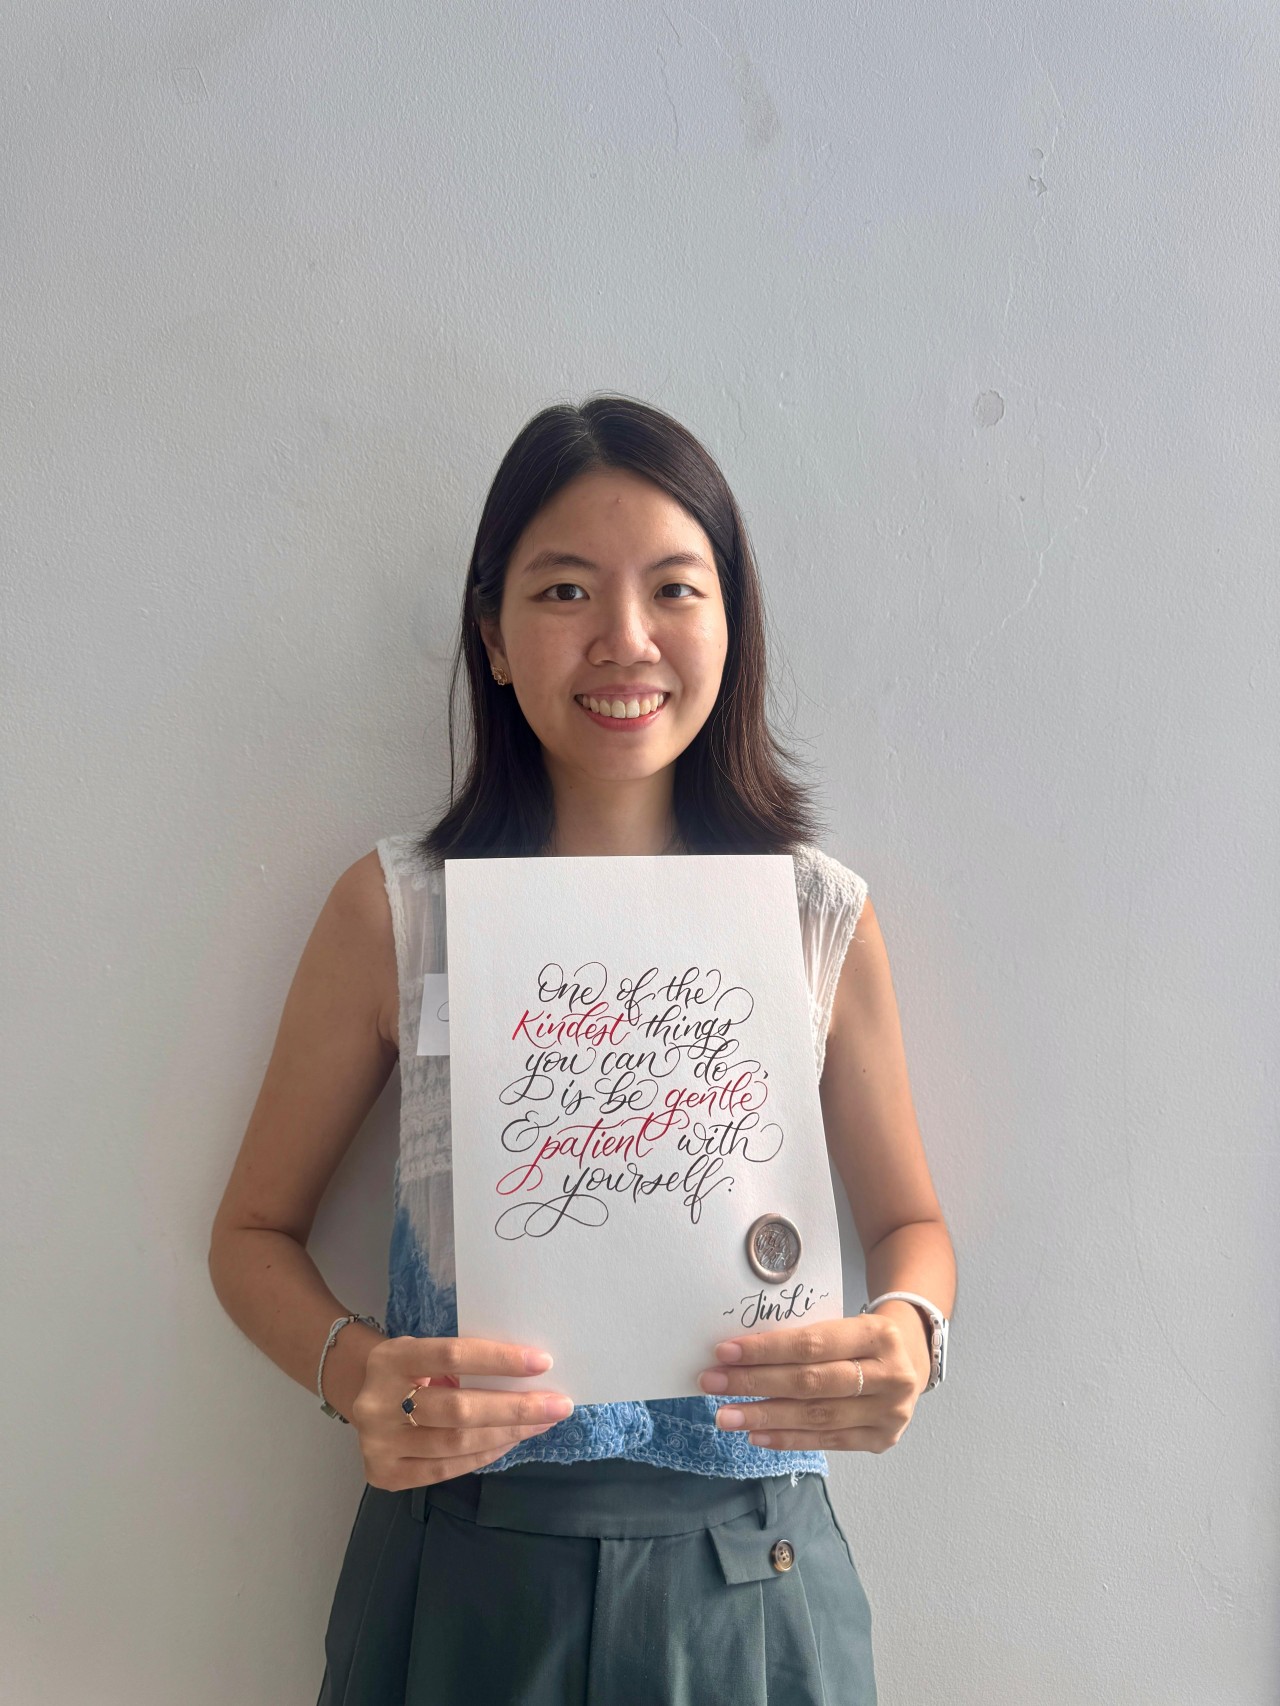 One of the
Kindest things
you can do,
is be gentle
& patient with
yourself.
~ JinLi ~